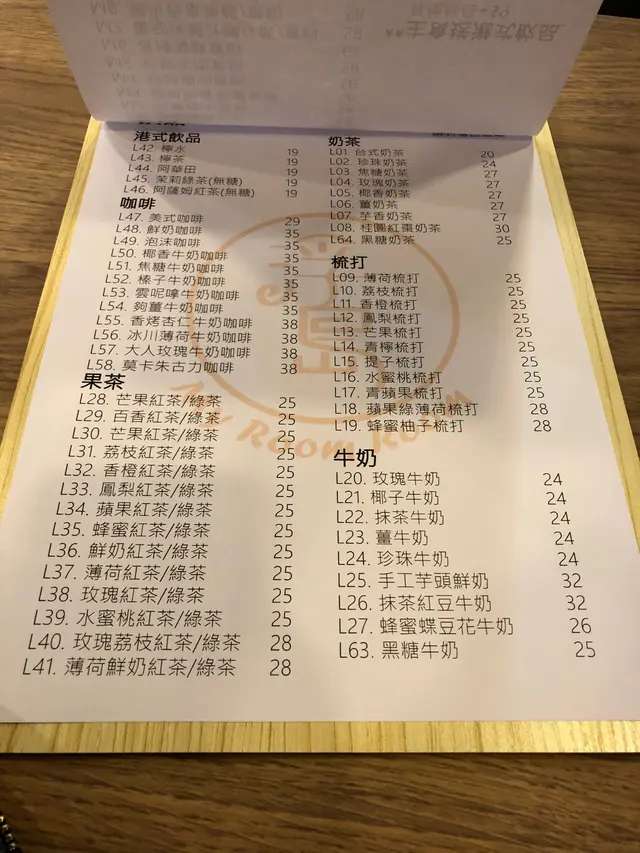 港式飲品
L42. 檸水 19
L43. 檸茶 19
L44. 阿華田 19
L45. 茉莉綠茶(無糖) 19
L46. 阿薩姆紅茶(無糖) 19
咖啡
L47. 美式咖啡 29
L48. 鮮奶咖啡 35
L49. 泡沫咖啡 35
L50. 椰香牛奶咖啡 35
L51. 焦糖牛奶咖啡 35
L52. 榛子牛奶咖啡 35
L53. 雲呢拿牛奶咖啡 35
L54. 夠薑牛奶咖啡 35
L55. 香烤杏仁牛奶咖啡 38
L56. 冰川薄荷牛奶咖啡 38
L57. 大人玫瑰牛奶咖啡 38
L58. 莫卡朱古力咖啡 38
果茶
L28. 芒果紅茶/綠茶 25
L29. 百香紅茶/綠茶 25
L30. 芒果紅茶/綠茶 25
L31. 荔枝紅茶/綠茶 25
L32. 香橙紅茶/綠茶 25
L33. 鳳梨紅茶/綠茶 25
L34. 蘋果紅茶/綠茶 25
L35. 蜂蜜紅茶/綠茶 25
L36. 鮮奶紅茶/綠茶 25
L37. 薄荷紅茶/綠茶 25
L38. 玫瑰紅茶/綠茶 25
L39. 水蜜桃紅茶/綠茶 25
L40. 玫瑰荔枝紅茶/綠茶 28
L41. 薄荷鮮奶紅茶/綠茶 28
奶茶
L01. 台式奶茶 20
L02. 珍珠奶茶 24
L03. 焦糖奶茶 27
L04. 玫瑰奶茶 27
L05. 椰香奶茶 27
L06. 薑奶茶 27
L07. 芋香奶茶 27
L08. 桂圓紅棗奶茶 30
L64. 黑糖奶茶 25
梳打
L09. 薄荷梳打 25
L10. 荔枝梳打 25
L11. 香橙梳打 25
L12. 鳳梨梳打 25
L13. 芒果梳打 25
L14. 青檸梳打 25
L15. 提子梳打 25
L16. 水蜜桃梳打 25
L17. 青蘋果梳打 25
L18. 蘋果綠薄荷梳打 28
L19. 蜂蜜柚子梳打 28
牛奶
L20. 玫瑰牛奶 24
L21. 椰子牛奶 24
L22. 抹茶牛奶 24
L23. 薑牛奶 24
L24. 珍珠牛奶 24
L25. 手工芋頭鮮奶 32
L26. 抹茶紅豆牛奶 32
L27. 蜂蜜蝶豆花牛奶 26
L63. 黑糖牛奶 25